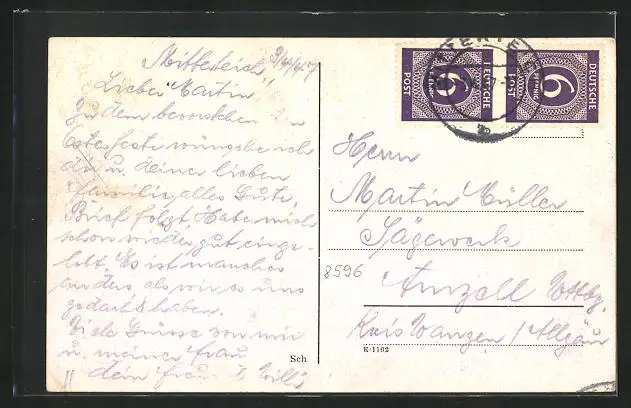 Mitterteich, 2/4/47
Lieber Martin!
Zu dem bevorstehenden
Osterfeste wünsche ich
dir u. deiner lieben
Familie alles Gute,
Brief folgt. Habe mich
schon wieder gut einge-
lebt. Es ist manches
anders als wir es uns
gedacht haben.
Viele Grüsse von mir
u. meiner Frau
dein Willi
Sch
DEUTSCHE
POST
6
PFENNIG
DEUTSCHE
POST
6
PFENNIG
Herrn
Martin Müller
Sägewerk
Amzell Wttbg.
Kreis Wangen / Allgäu
8596
E 1162